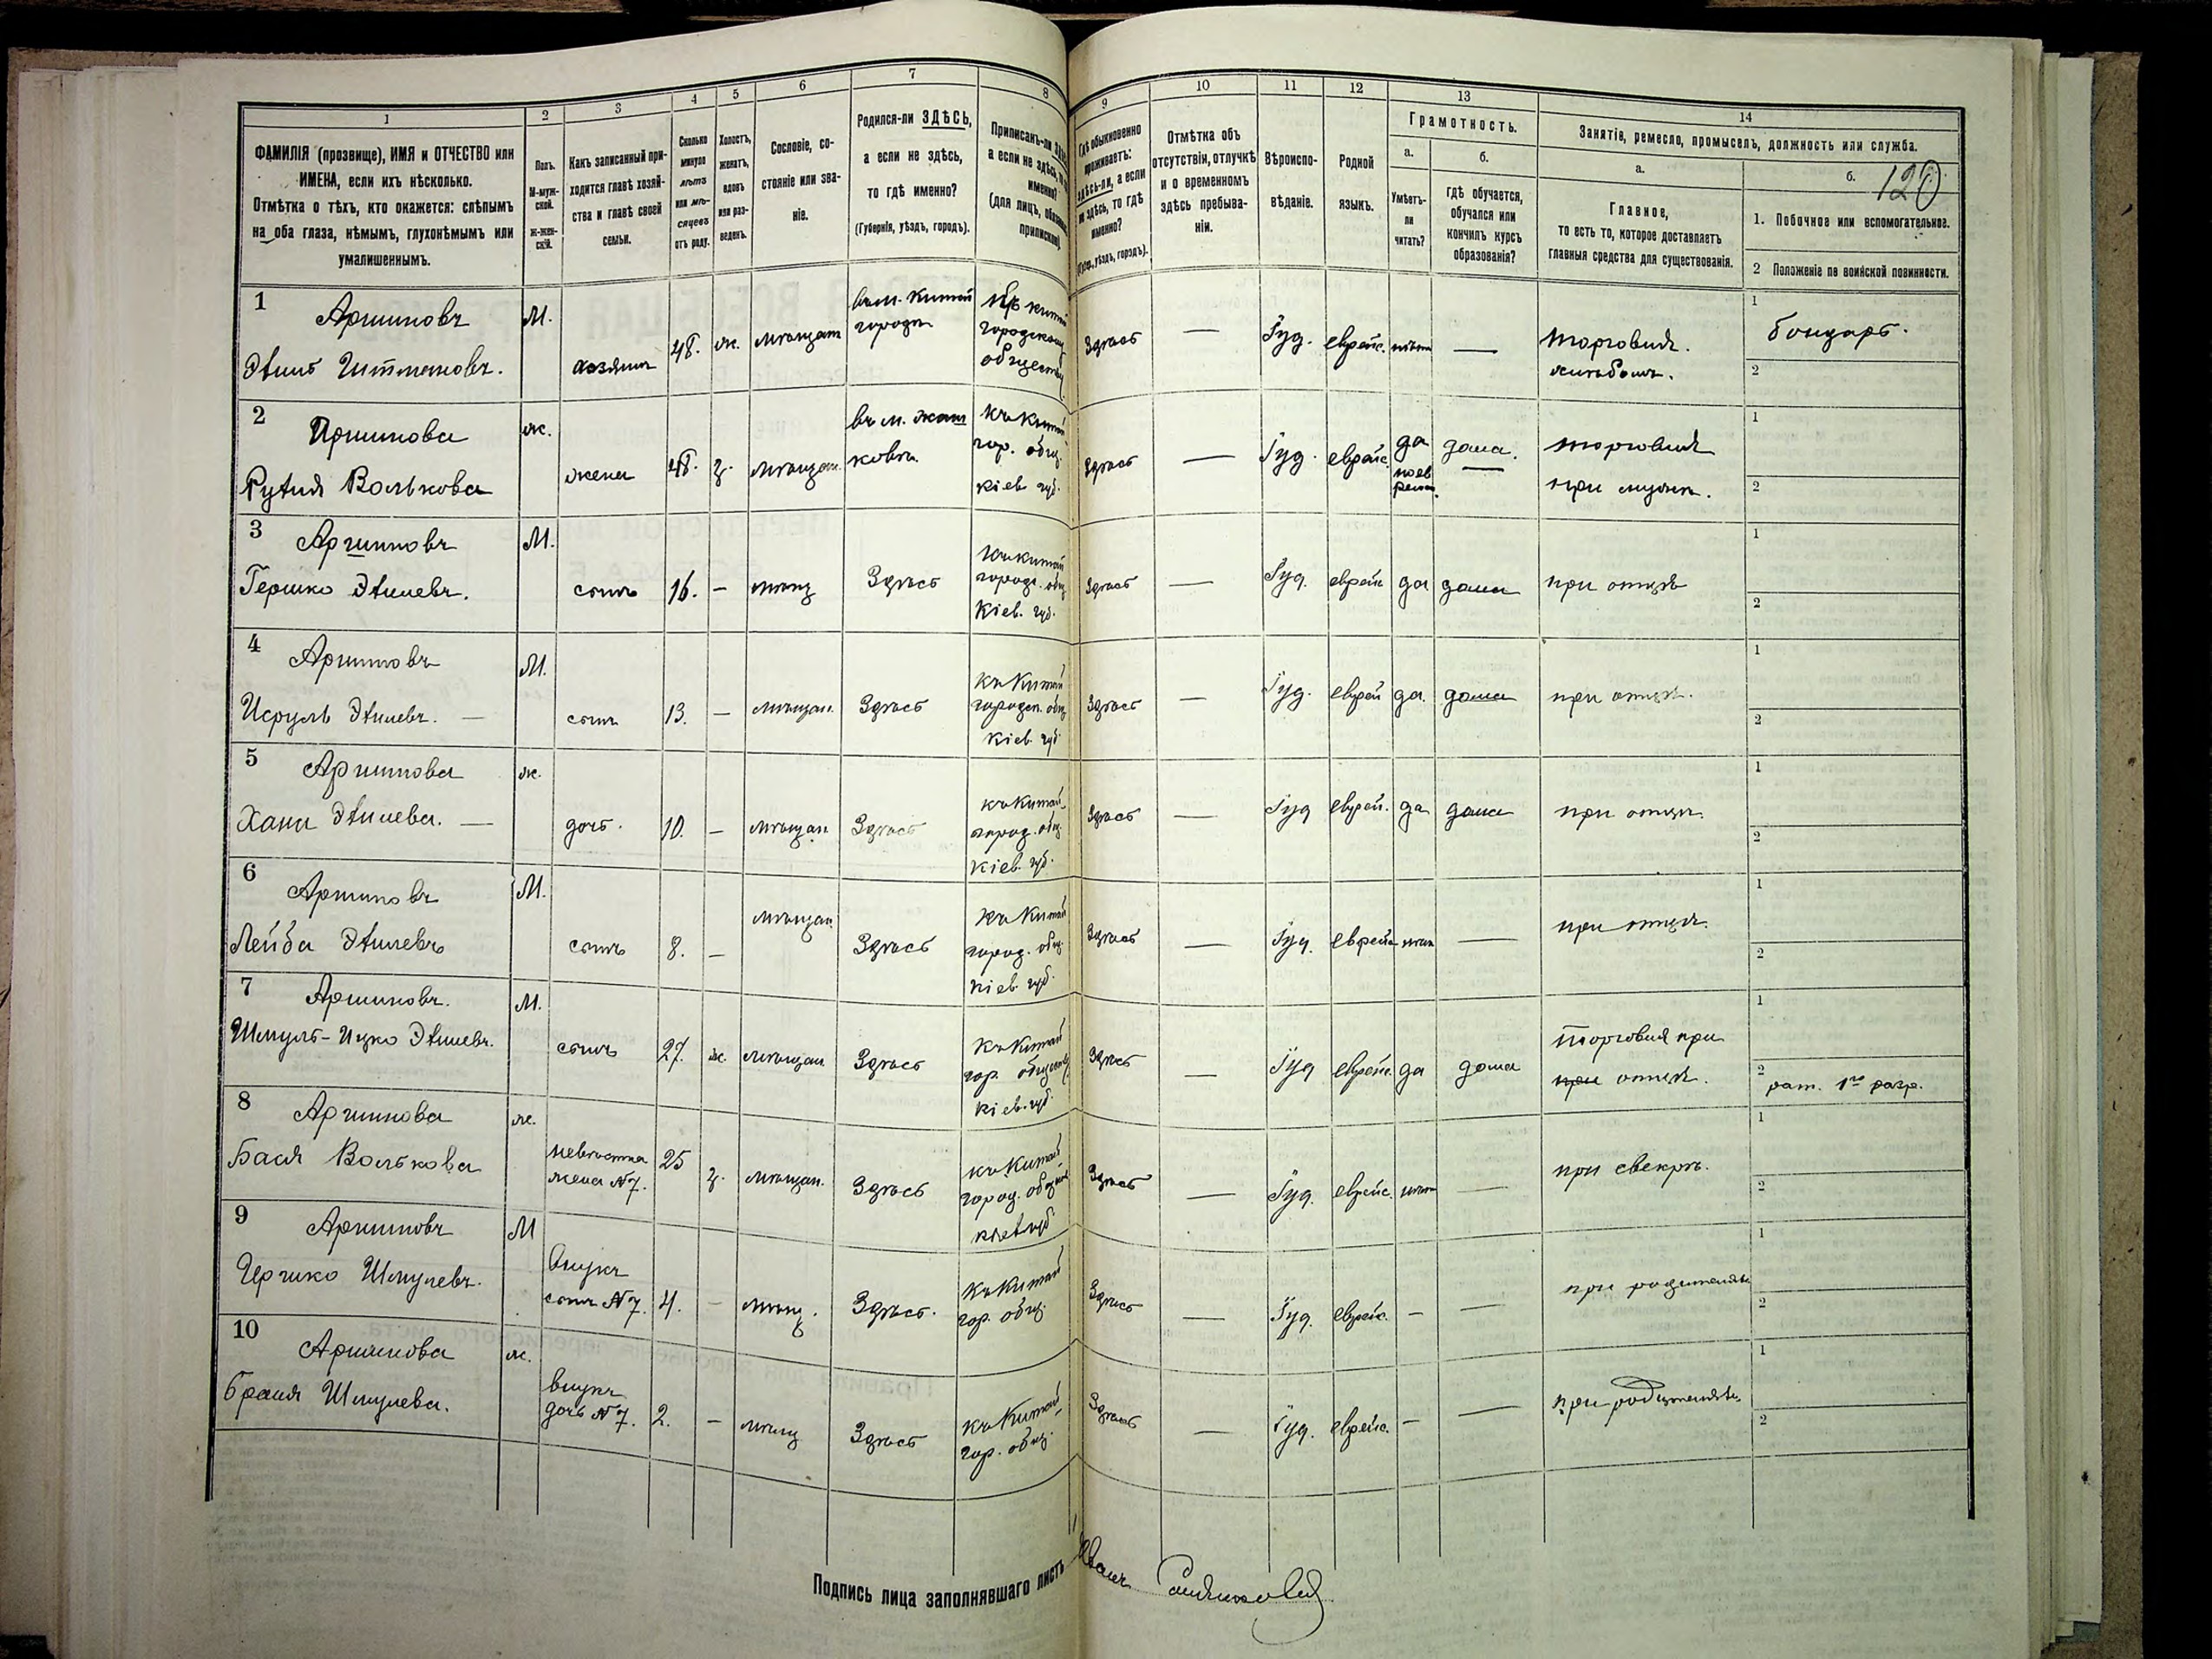 1
2
3
4
5
6
7
8
9
10
11
12
13
14
ФАМИЛІЯ (прозвище), ИМЯ и ОТЧЕСТВО или
ИМЕНА, если ихъ нѣсколько.
Отмѣтка о тѣхъ, кто окажется: слѣпымъ
на оба глаза, нѣмымъ, глухонѣмымъ или
умалишеннымъ.
Полъ.
М-муж-
ской.
Ж-жен-
скій.
Какъ записанный при-
ходится главѣ хозяй-
ства и главѣ своей
семьи.
Сколько
минуло
лѣтъ
или мѣ-
сяцевъ
отъ роду.
Холостъ,
женатъ,
вдовъ
или раз-
веденъ.
Сословіе, со-
стояніе или зва-
ніе.
Родился-ли ЗДѢСЬ,
а если не здѣсь,
то гдѣ именно?
(Губернія, уѣздъ, городъ).
Приписанъ-ли
а если не здѣсь,
именно?
(для лицъ,
припискою).
Гдѣ обыкновенно
проживаетъ:
здѣсь-ли, а если
не здѣсь, то гдѣ
именно?
уѣздъ, городъ).
Отмѣтка объ
отсутствіи, отлучкѣ
и о временномъ
здѣсь пребыва-
ніи.
Вѣроиспо-
вѣданіе.
Родной
языкъ.
Грамотность.
а.
Умѣетъ-
ли
читать?
б.
гдѣ обучается,
обучался или
кончилъ курсъ
образованія?
Занятіе, ремесло, промыселъ, должность или служба.
а.
Главное,
то есть то, которое доставляетъ
главныя средства для существованія.
б.
120
1. Побочное или вспомогательное.
2 Положеніе по воинской повинности.
1
Аршиновъ
М.
хозяинъ
48. ж. мѣщан
въ м. Китай
городѣ
городском
обществ
Здѣсь — Іуд. еврейс. нѣтъ —
торговля
хлѣбомъ.
1
бондарь.
2
2
Аршинова
Рухля Волькова
ж.
жена
48. з. мѣщан.
въ м. Жаш
ковѣ.
къ Китай
гор. общ.
Кіев. губ.
Здѣсь — Іуд. еврейс. да
по ев
рейск.
дома.
торговля
при мужѣ.
1
2
3
Аршиновъ
Гершко Эхилевъ.
М.
сынъ 16. — мѣщ Здѣсь
къ Китай
городс. общ
Кіев. губ.
Здѣсь — Іуд. еврейс да дома при отцѣ
1
2
4
Аршиновъ
Исруль Эхилевъ. —
М.
сынъ 13. — мѣщан. Здѣсь
къ Китай
городск. общ
Кіев. губ.
Здѣсь — Іуд. еврей да. дома при отцѣ.
1
2
5
Аршинова
Хана Эхилева. —
ж.
дочь. 10. — мѣщан Здѣсь
къ Китай-
город. общ.
Кіев. губ.
Здѣсь — Іуд еврей. да дома при отцѣ.
1
2
6
Аршиновъ
Лейба Эхилевъ
М.
сынъ 8. — мѣщан Здѣсь
къ Китай
город. общ.
Кіев. губ.
Здѣсь — Іуд. еврейс нѣтъ — при отцѣ.
1
2
7
Аршиновъ.
Шмуль-Ицко Эхилевъ.
М.
сынъ 27. ж. мѣщан. Здѣсь
къ Китай
гор. обществ
Кіев. губ.
Здѣсь — Іуд еврейс. да дома
торговля при
при отцѣ.
1
2
рат. 1го разр.
8
Аршинова
Бася Волькова
ж.
невѣстка
жена №7.
25 з. мѣщан. Здѣсь
къ Китай-
город. общ
Кіев губ
Здѣсь — Іуд. еврейс. нѣтъ — при свекрѣ.
1
2
9
Аршиновъ
Гершко Шмулевъ.
М
внукъ
сынъ №7. 4. — мѣщ. Здѣсь.
къ Китай
гор. общ.
Здѣсь — Іуд. еврейс. — — при родителяхъ
1
2
10
Аршинова
Браня Шмулева.
ж.
внукъ
дочь №7. 2. — мѣщ Здѣсь
къ Китай-
гор. общ.
Здѣсь — Іуд. еврейс. — — при родителяхъ
1
2
Подпись лица заполнявшаго листъ
Иванъ